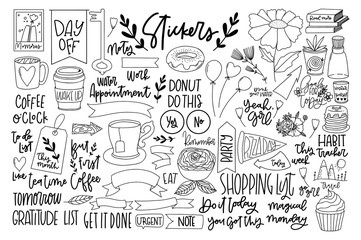 Stickers
Memories
DAY
OFF
Notes
Water
Work
Appointment
WAKE UP
DONUT
DO THIS
COFFEE
O'CLOCK
Yes
No
Yeah
girl
To do
list
This
month
But
first
Coffee
Remember
PARTY
PIZZA
Today
HABIT
tracker
week
tea time
EAT
SHOPPING LIST
Travel
TOMORROW
Do it today
magical
GRATITUDE LIST
GET IT DONE
URGENT
NOTE
You got this
monday